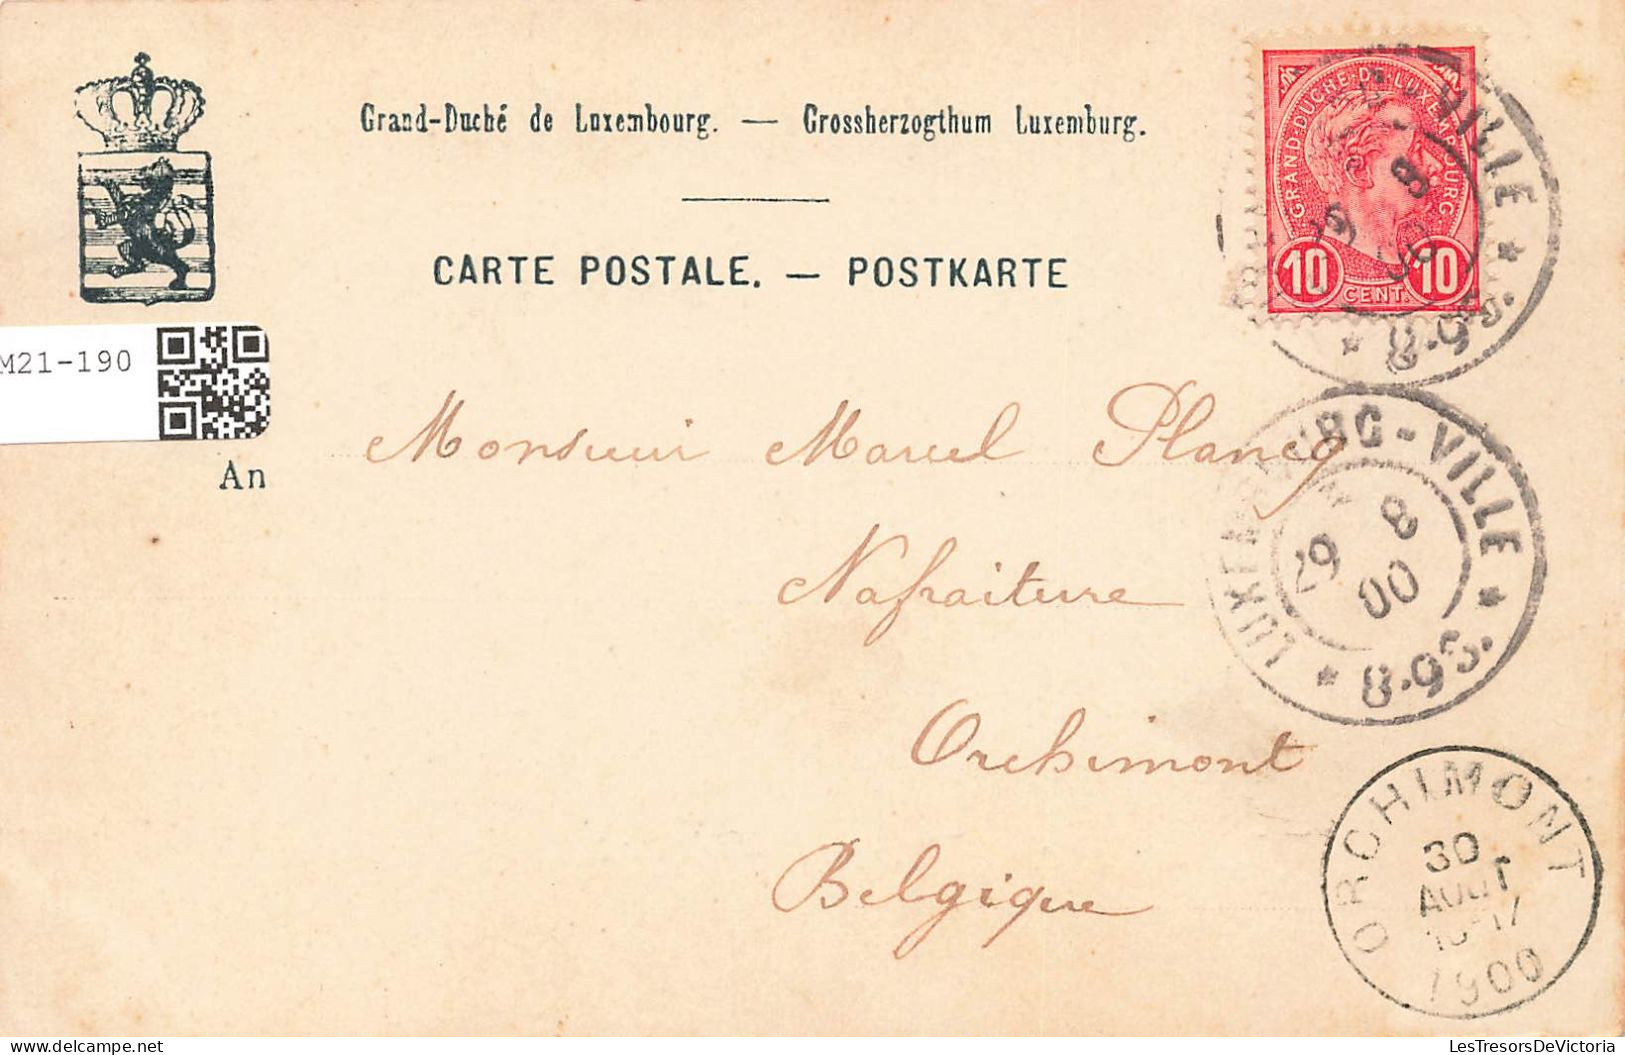 Grand-Duché de Luxembourg. — Grossherzogthum Luxemburg.
CARTE POSTALE. — POSTKARTE
GRAND-DUCHE-DE-LUXEMBOURG
10 CENT. 10
VILLE
8
00
8-9 S.
M21-190
An
Monsieur Marcel Plancq
Nafraiture
Orchimont
Belgique
LUXEMBOURG-VILLE
29 8
00
8-9 S.
ORCHIMONT
30
AOUT
1900
LesTresorsDeVictoria